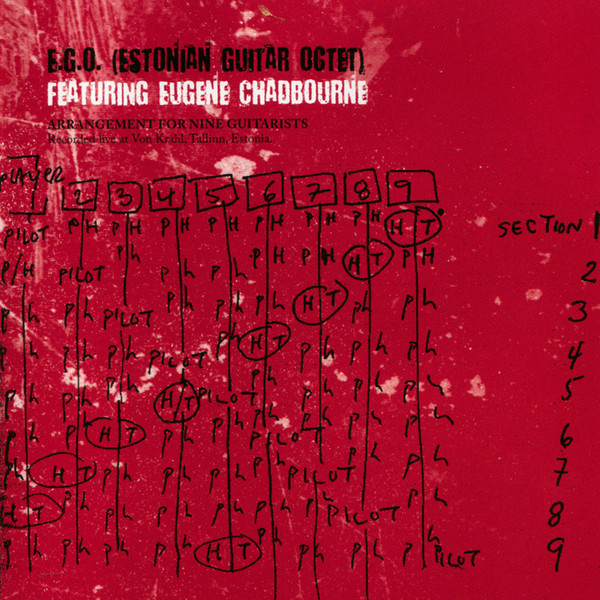 E.G.O. (ESTONIAN GUITAR OCTET)
FEATURING EUGENE CHADBOURNE
ARRANGEMENT FOR NINE GUITARISTS
Recorded live at Von Krahl, Tallinn, Estonia.
PLAYER
1 2 3 4 5 6 7 8 9
PILOT PH PH PH PH PH PH PH HT SECTION 1
P/H PILOT ph ph ph PH PH HT PH 2
ph ph PILOT ph ph ph HT ph ph 3
ph ph ph PILOT ph HT ph ph ph 4
ph ph ph HT PILOT ph ph ph ph 5
ph ph HT ph ph PILOT ph ph ph 6
ph HT ph ph ph ph PILOT ph ph 7
HT ph ph ph ph ph ph PILOT ph 8
ph ph ph ph HT ph ph ph PILOT 9